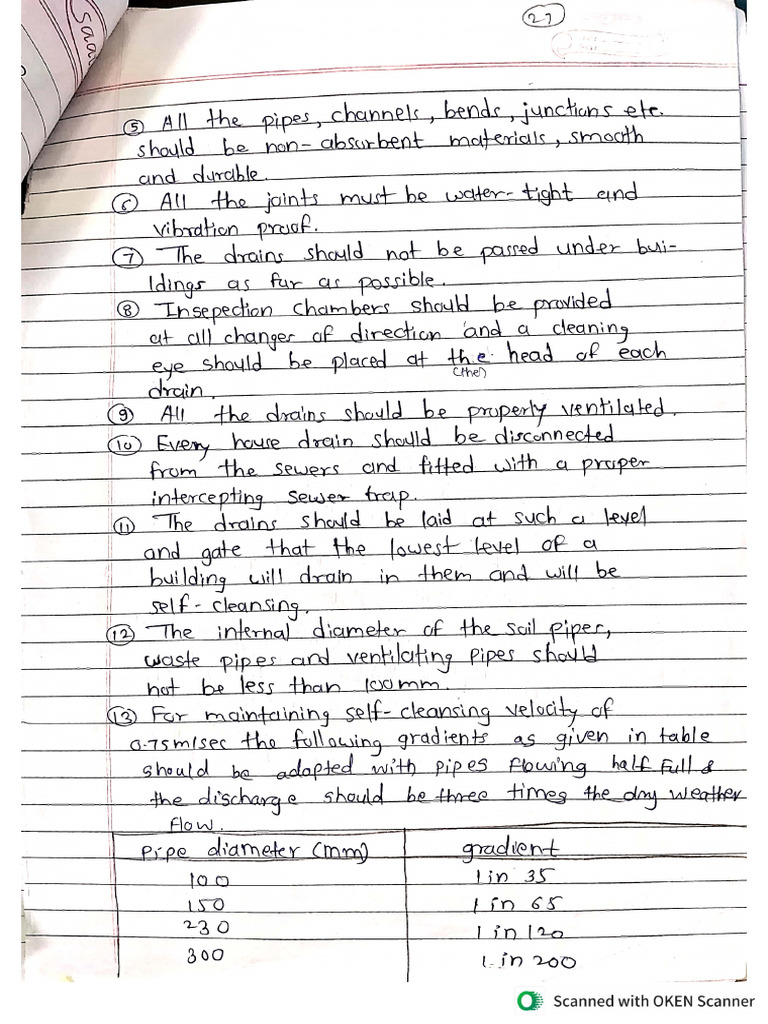 27
⑤ All the pipes, channels, bends, junctions etc.
should be non-absurbent materials, smooth
and durable.
⑥ All the joints must be water-tight and
vibration proof.
⑦ The drains should not be passed under bui-
ldings as far as possible.
⑧ Insepection chambers should be provided
at all changes of direction and a cleaning
eye should be placed at the head of each
(the)
drain.
⑨ All the drains should be properly ventilated.
⑩ Every house drain should be disconnected
from the sewers and fitted with a proper
intercepting sewer trap.
⑪ The drains should be laid at such a level
and gate that the lowest level of a
building will drain in them and will be
self-cleansing.
⑫ The internal diameter of the soil pipes,
waste pipes and ventilating pipes should
not be less than 100mm.
⑬ For maintaining self-cleansing velocity of
0.75m/sec the following gradients as given in table
should be adapted with pipes flowing half full &
the discharge should be three times the dry weather
flow.
Pipe diameter (mm) gradient
100 1 in 35
150 1 in 65
230 1 in 120
300 1 in 200
Scanned with OKEN Scanner